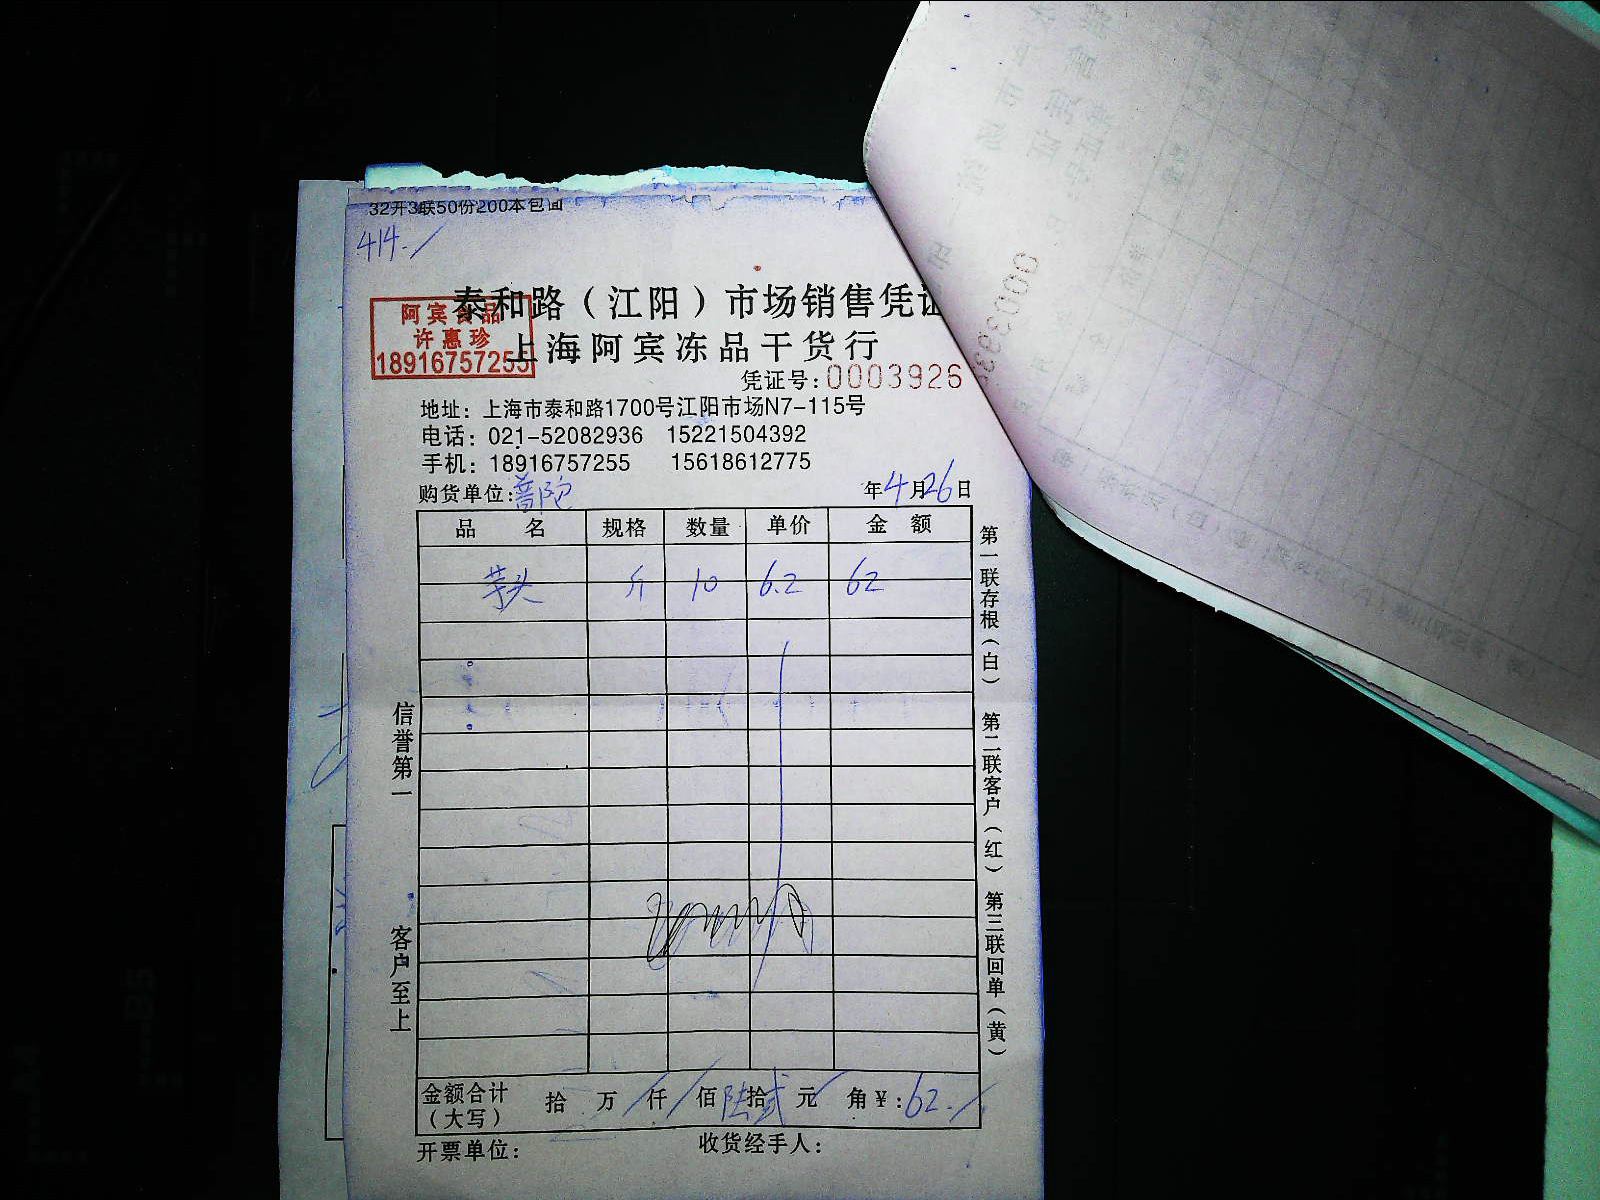 32开3联50份200本包面
414.
泰和路（江阳）市场销售凭证
阿宾食品
许惠珍
18916757255
上海阿宾冻品干货行
凭证号：0003926
地址：上海市泰和路1700号江阳市场N7-115号
电话：021-52082936 15221504392
手机：18916757255 15618612775
购货单位： 年4月26日
品 名 规格 数量 单价 金 额
芋头 斤 10 6.2 62
第一联存根（白） 第二联客户（红） 第三联回单（黄）
信誉第一 客户至上
金额合计（大写） 拾 万 仟 佰 陆拾贰 元 角 ¥：62.
开票单位： 收货经手人：